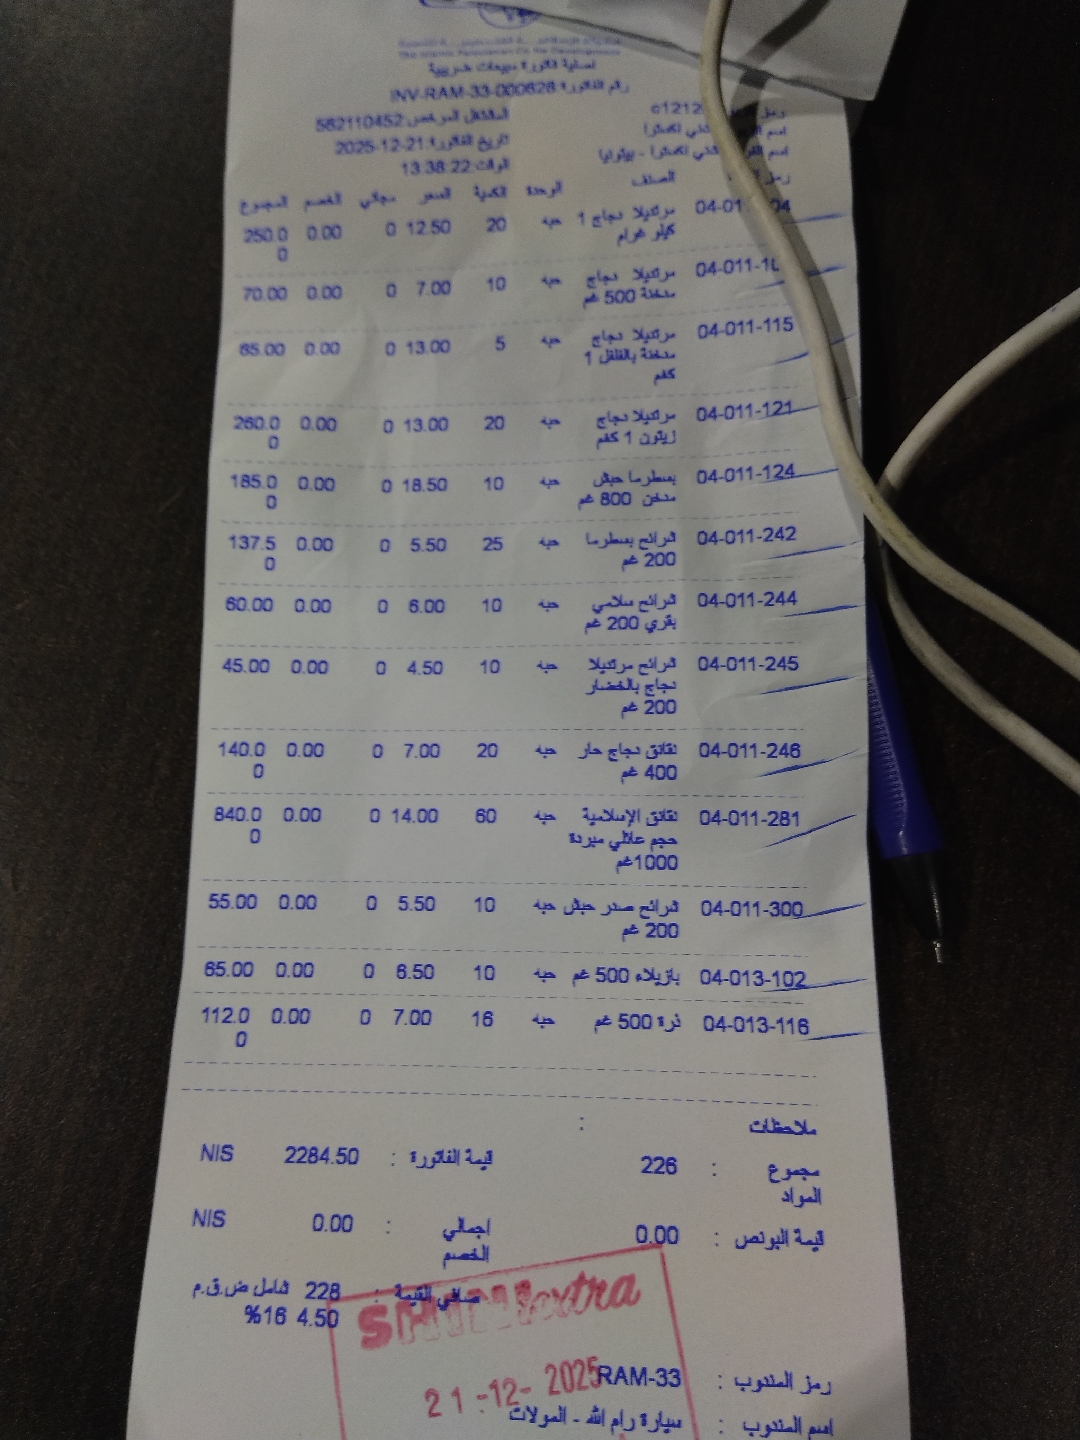 لصالية فاتورة مبيعات ضريبية
رقم الفاتورة: INV-RAM-33-000628
c1212 المشتغل المرخص: 562110452
تاريخ الفاتورة: 2025-12-21
الوقت: 13:38:22
الصنف الوحدة الكمية السعر مجاني الخصم المجموع
مرتديلا دجاج 1 حبه 20 12.50 0 0.00 250.0
كيلو غرام 0
04-011- مرتديلا دجاج حبه 10 7.00 0 0.00 70.00
مدخنة 500 غم
04-011-115 مرتديلا دجاج حبه 5 13.00 0 0.00 65.00
مدخنة بالفلفل 1
كغم
04-011-121 مرتديلا دجاج حبه 20 13.00 0 0.00 260.0
زيتون 1 كغم 0
04-011-124 بسطرما حبش حبه 10 18.50 0 0.00 185.0
مدخن 800 غم 0
04-011-242 شرائح بسطرما حبه 25 5.50 0 0.00 137.5
200 غم 0
04-011-244 شرائح سلامي حبه 10 6.00 0 0.00 60.00
بقري 200 غم
04-011-245 شرائح مرتديلا حبه 10 4.50 0 0.00 45.00
دجاج بالخضار
200 غم
04-011-246 نقانق دجاج حار حبه 20 7.00 0 0.00 140.0
400 غم 0
04-011-281 نقانق الإسلامية حبه 60 14.00 0 0.00 840.0
حجم عائلي مبردة 0
1000غم
04-011-300 شرائح صدر حبش حبه 10 5.50 0 0.00 55.00
200 غم
04-013-102 بازيلاء 500 غم حبه 10 6.50 0 0.00 65.00
04-013-116 ذرة 500 غم حبه 16 7.00 0 0.00 112.0
0
ملاحظات :
مجموع المواد : 226 قيمة الفاتورة : 2284.50 NIS
قيمة البونص : 0.00 اجمالي الخصم : 0.00 NIS
صافي القيمة : 228 شامل ض.ق.م
4.50 16%
SHINI extra
21-12-2025
رمز المندوب : RAM-33
اسم المندوب : سيارة رام الله - المولات